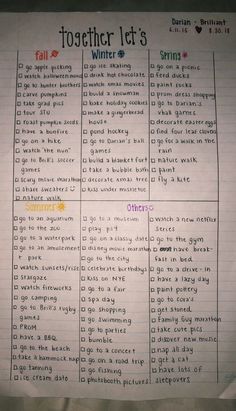 together let's
Darian + Brilliant
6.11.15 ♥ 8.30.15
Fall
□ go apple picking
□ watch halloween movies
□ go to hunter brothers
□ carve pumpkins
□ take grad pics
□ tour JSU
□ roast pumpkin seeds
□ have a bonfire
□ go on a hike
□ watch "the nun"
□ go to Brill's soccer
games
□ scary movie marathon
□ share sweaters ☺
□ nature walk
Winter
□ go ice skating
□ drink hot chocolate
□ watch xmas movies
□ build a snowman
□ bake holiday cookies
□ make a gingerbread
house
□ pond hockey
□ go to Darian's ball
games
□ build a blanket fort
□ take a bubble bath
□ decorate xmas tree
□ kiss under mistletoe
Spring
□ go on a picnic
□ feed ducks
□ paint rocks
□ prom dress shopping
□ go to Darian's
vball games
□ decorate easter eggs
□ find four leaf clovers
□ go for a walk in the
rain
□ nature walk
□ paint
□ fly a kite
Summer
□ go to an aquarium
□ go to the zoo
□ go to a waterpark
□ go to an amusement
park
□ watch sunsets/rise
□ stargaze
□ watch fireworks
□ go camping
□ go to Brill's rugby
games
□ PROM
□ have a BBQ
□ go to the beach
□ take a hammock nap
□ go tanning
□ ice cream date
Others
□ go to a museum
□ play
□ go on a classy date
□ disney movie marathon
□ go to the city
□ celebrate birthdays
□ kiss on NYE
□ go to a fair
□ spa day
□ go shopping
□ go swimming
□ go to parties
□ bumble
□ go to a concert
□ go on a road trip
□ go fishing
□ photobooth pictures
□ watch a new netflix
series
□ go to the gym
□ have break-
fast in bed
□ go to a drive-in
□ have a lazy day
□ paint pottery
□ go to cora's
□ get stoned
□ family guy marathon
□ take cute pics
□ discover new music
□ nap all day
□ get a cat
□ have lots of
sleepovers